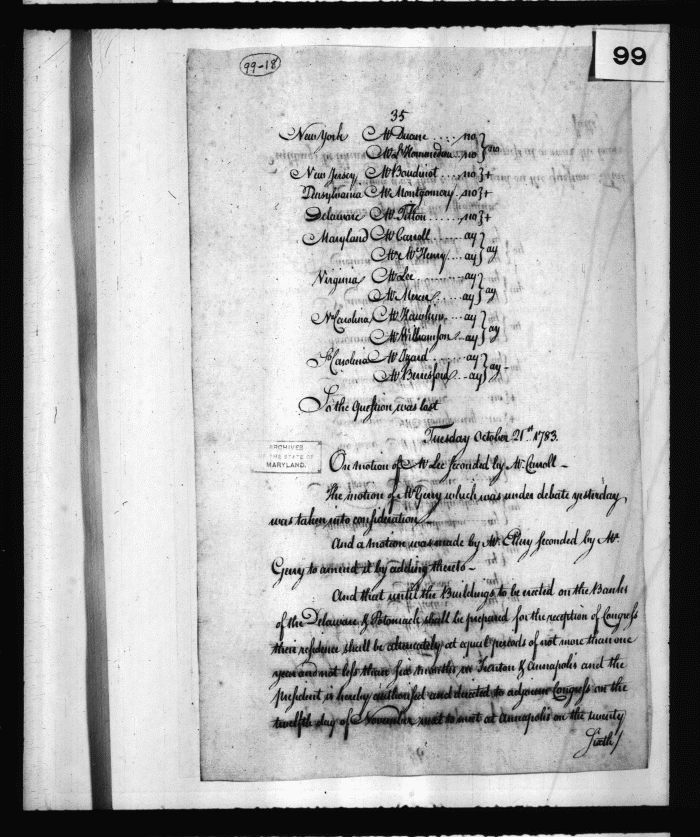 99-18
99
35
New York Mr Duane .... no } no
Mr L'Hommedieu no
New Jersey Mr Boudinot . no } +
Pensylvania Mr Montgomery . no } +
Delaware Mr Tilton ...... no } +
Maryland Mr Carroll .... ay } ay
Mr McHenry .. ay
Virginia Mr Lee ......... ay } ay
Mr Mercer .... ay
No Carolina Mr Hawkins .. ay } ay
Mr Williamson .. ay
So Carolina Mr Izard ...... ay } ay
Mr Beresford .. ay
So the Question was lost
Tuesday October 21st 1783.
ARCHIVES
THE STATE OF
MARYLAND.
On motion of Mr Lee seconded by Mr Carroll –
The motion of Mr Gerry which was under debate yesterday,
was taken into consideration –
And a motion was made by Mr. Ellery seconded by Mr.
Gerry to amend it by adding thereto –
And that until the Buildings to be erected on the Banks
of the Delaware & Potomack shall be prepared for the reception of Congress
their residence shall be alternately at equal periods of not more than one
year and not less than six months in Trenton & Annapolis and the
president is hereby authorised and directed to adjourn Congress on the
twelfth day of November next to meet at Annapolis on the twenty
Sixth